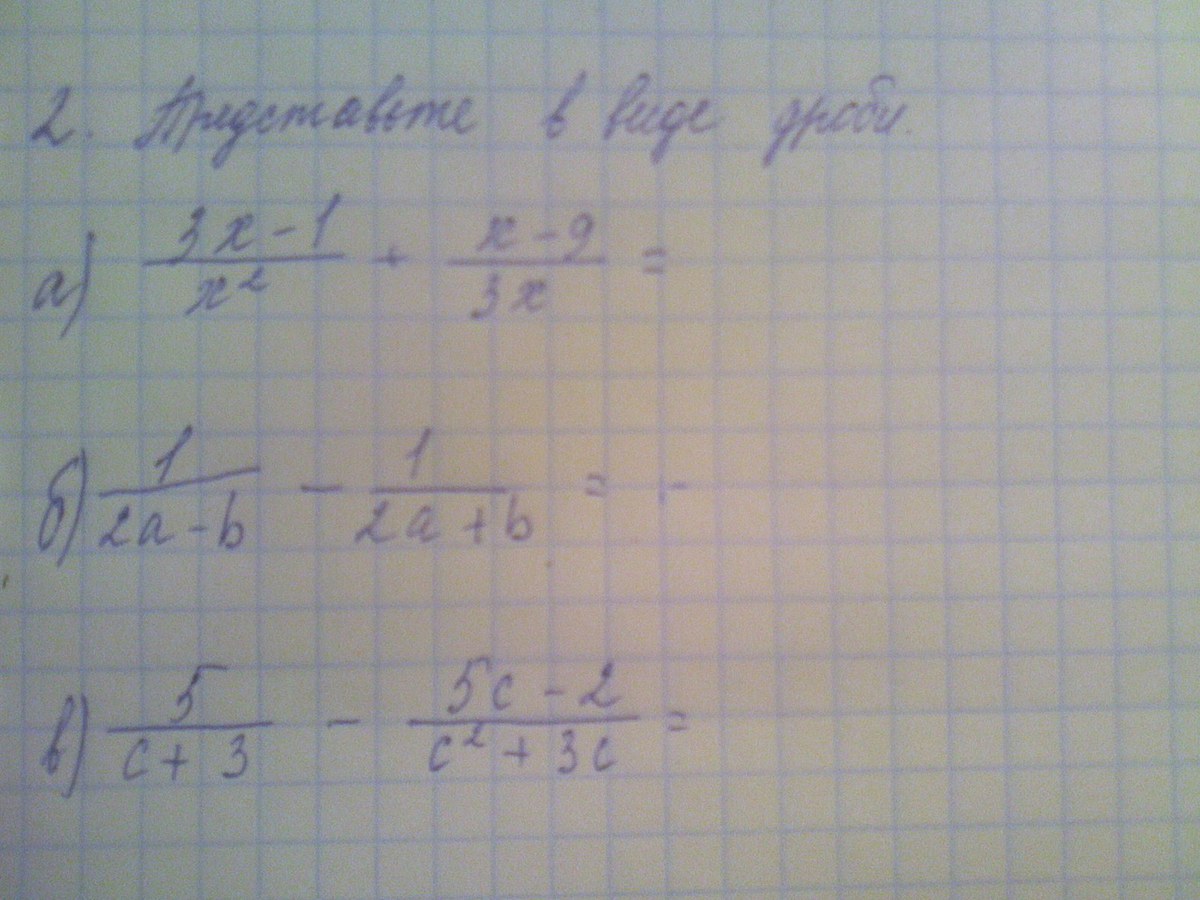 2. Представьте в виде дроби.
а) \frac{3x-1}{x^2} + \frac{x-9}{3x} =
б) \frac{1}{2a-b} - \frac{1}{2a+b} = -
в) \frac{5}{c+3} - \frac{5c-2}{c^2+3c} =